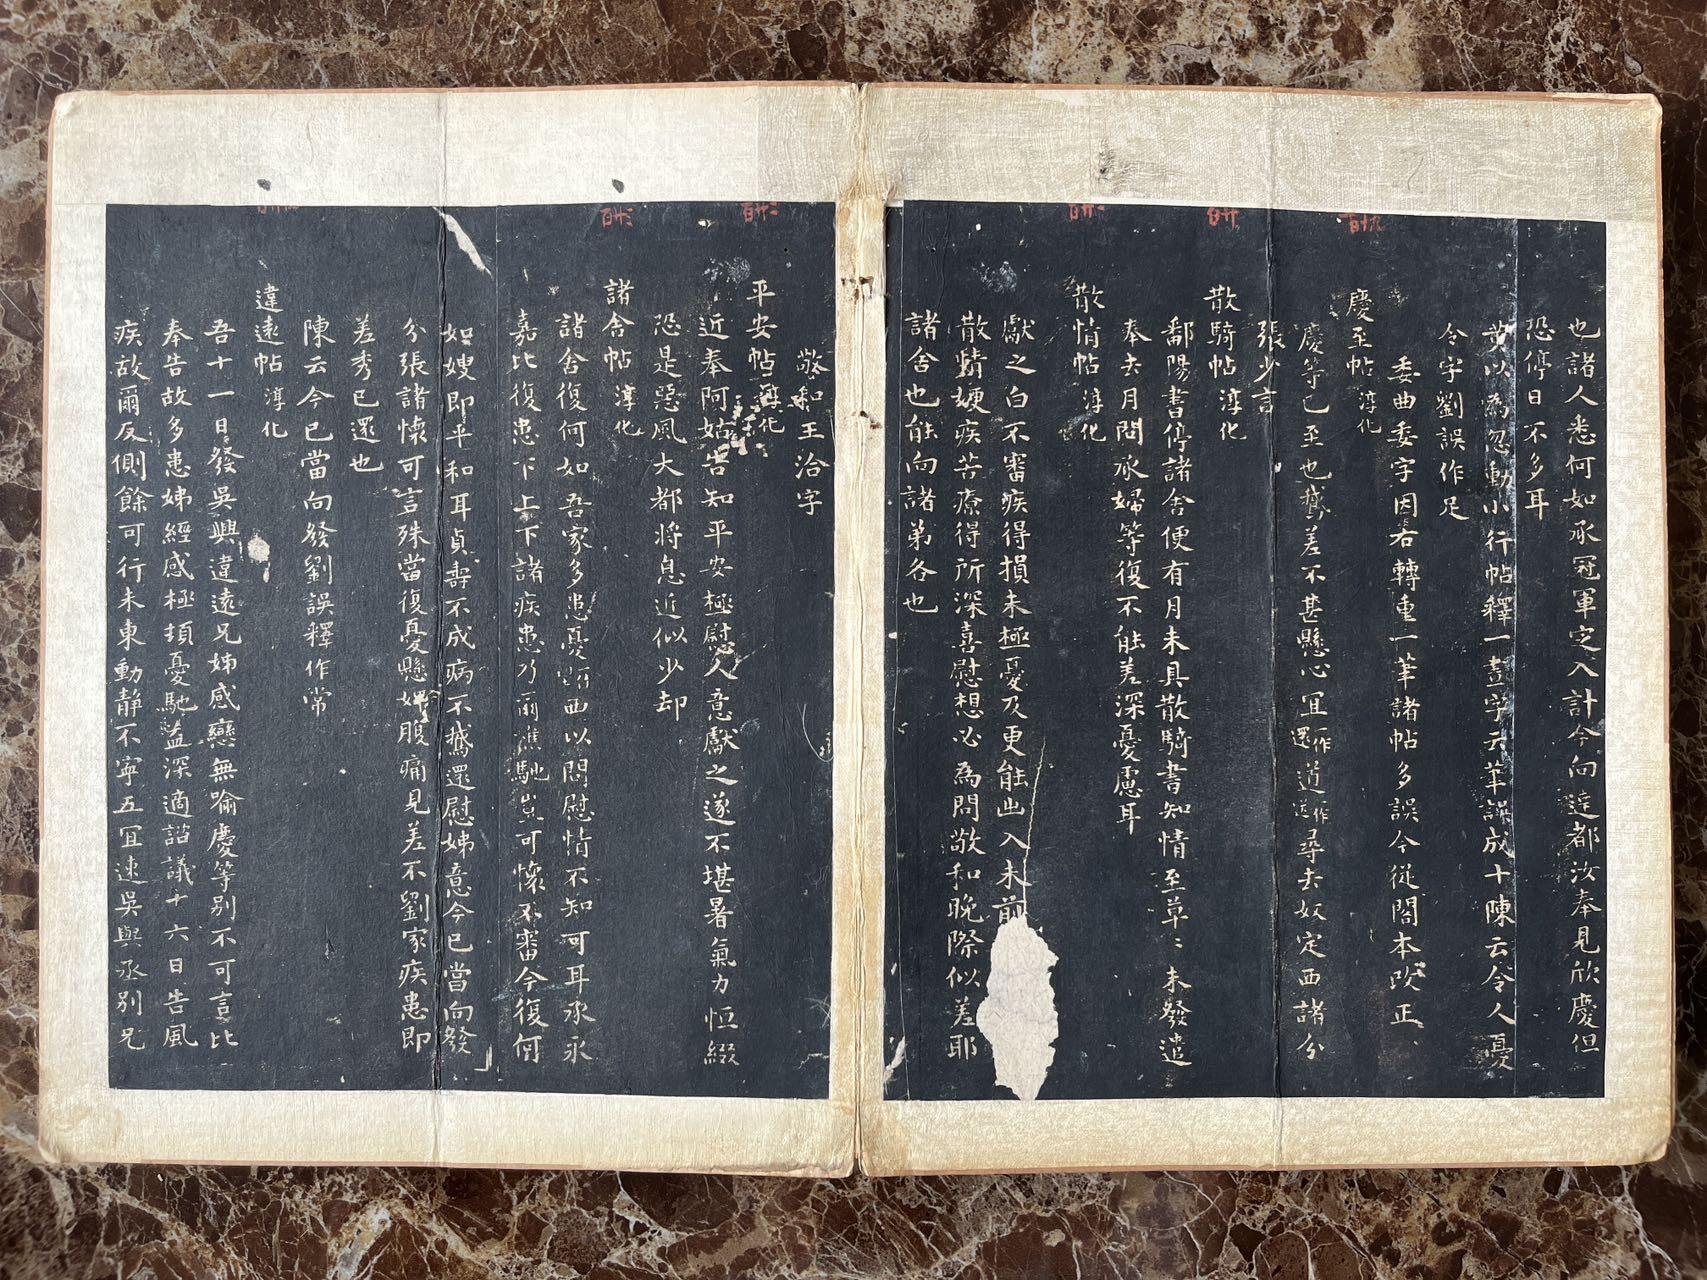 也諸人悉何如承冠軍定入計今向達都汝奉見欣慶但
恐停日不多耳
黄以為忽動小行帖釋一晝字元筆誤成十陳云令人憂
令字劉誤作足
委曲委字因若轉重一筆諸帖多誤今從閣本改正
慶至帖 淳化
慶等已至也鵝差不甚懸心宜一作還道一作送尋去奴定西諸分
張少言
散騎帖 淳化
鄱陽書停諸舍便有月未具散騎書知情至草〻未發遣
奉去月問承婦等復不能差深憂慮耳
散情帖 淳化
獻之白不審疾得損未極憂及更能出入未前
散騎娷疾苦療得所深喜慰想必為問敬和晚際似差耶
諸舍也能向諸弟各也
敬和王洽字
平安帖 淳化
近奉阿姑告知平安極慰人意獻之遂不堪暑氣力恒綴
恐是惡風大都將息近似少却
諸舍帖 淳化
諸舍復何如吾家多患憂面以問慰情不知可耳承永
嘉比復患下上下諸疾患乃爾燋馳豈可懷不審今復何
如嫂即平和耳貞壽不成病不鵝還慰姊意今已當向發
分張諸懷可言殊當復憂懸娚腹痛見差不劉家疾患即
差秀已還也
陳云今已當向發劉誤釋作常
違遠帖 淳化
吾十一日發吳興違遠兄姊感戀無喻慶等别不可言比
奉告故多患姊經感極頓憂馳益深適諮議十六日告風
疾故爾反側餘可行未東動静不寧五宜速吳興承别兄